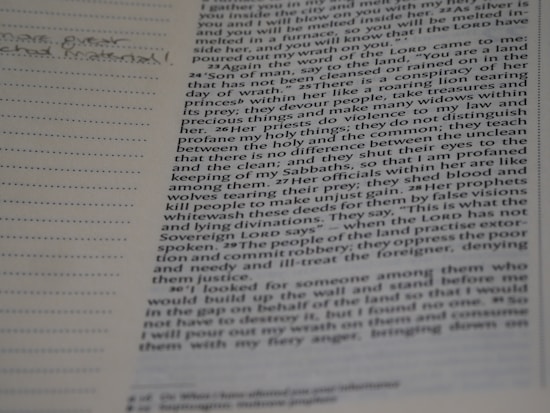 I gather you in my
you inside the city and melt you
you and I will blow on you with my fiery
and you will be melted inside her. 22As silver is
melted in a furnace, so you will be melted in-
side her, and you will know that I the LORD have
poured out my wrath on you.” ’
23Again the word of the LORD came to me:
24‘Son of man, say to the land, “You are a land
that has not been cleansed or rained on in the
day of wrath.” 25There is a conspiracy of her
princesb within her like a roaring lion tearing
its prey; they devour people, take treasures and
precious things and make many widows within
her. 26Her priests do violence to my law and
profane my holy things; they do not distinguish
between the holy and the common; they teach
that there is no difference between the unclean
and the clean; and they shut their eyes to the
keeping of my Sabbaths, so that I am profaned
among them. 27Her officials within her are like
wolves tearing their prey; they shed blood and
kill people to make unjust gain. 28Her prophets
whitewash these deeds for them by false visions
and lying divinations. They say, “This is what the
Sovereign LORD says” – when the LORD has not
spoken. 29The people of the land practise extor-
tion and commit robbery; they oppress the poor
and needy and ill-treat the foreigner, denying
them justice.
30‘I looked for someone among them who
would build up the wall and stand before me
in the gap on behalf of the land so that I would
not have to destroy it, but I found no one. 31So
I will pour out my wrath on them and consume
them with my fiery anger, bringing down on